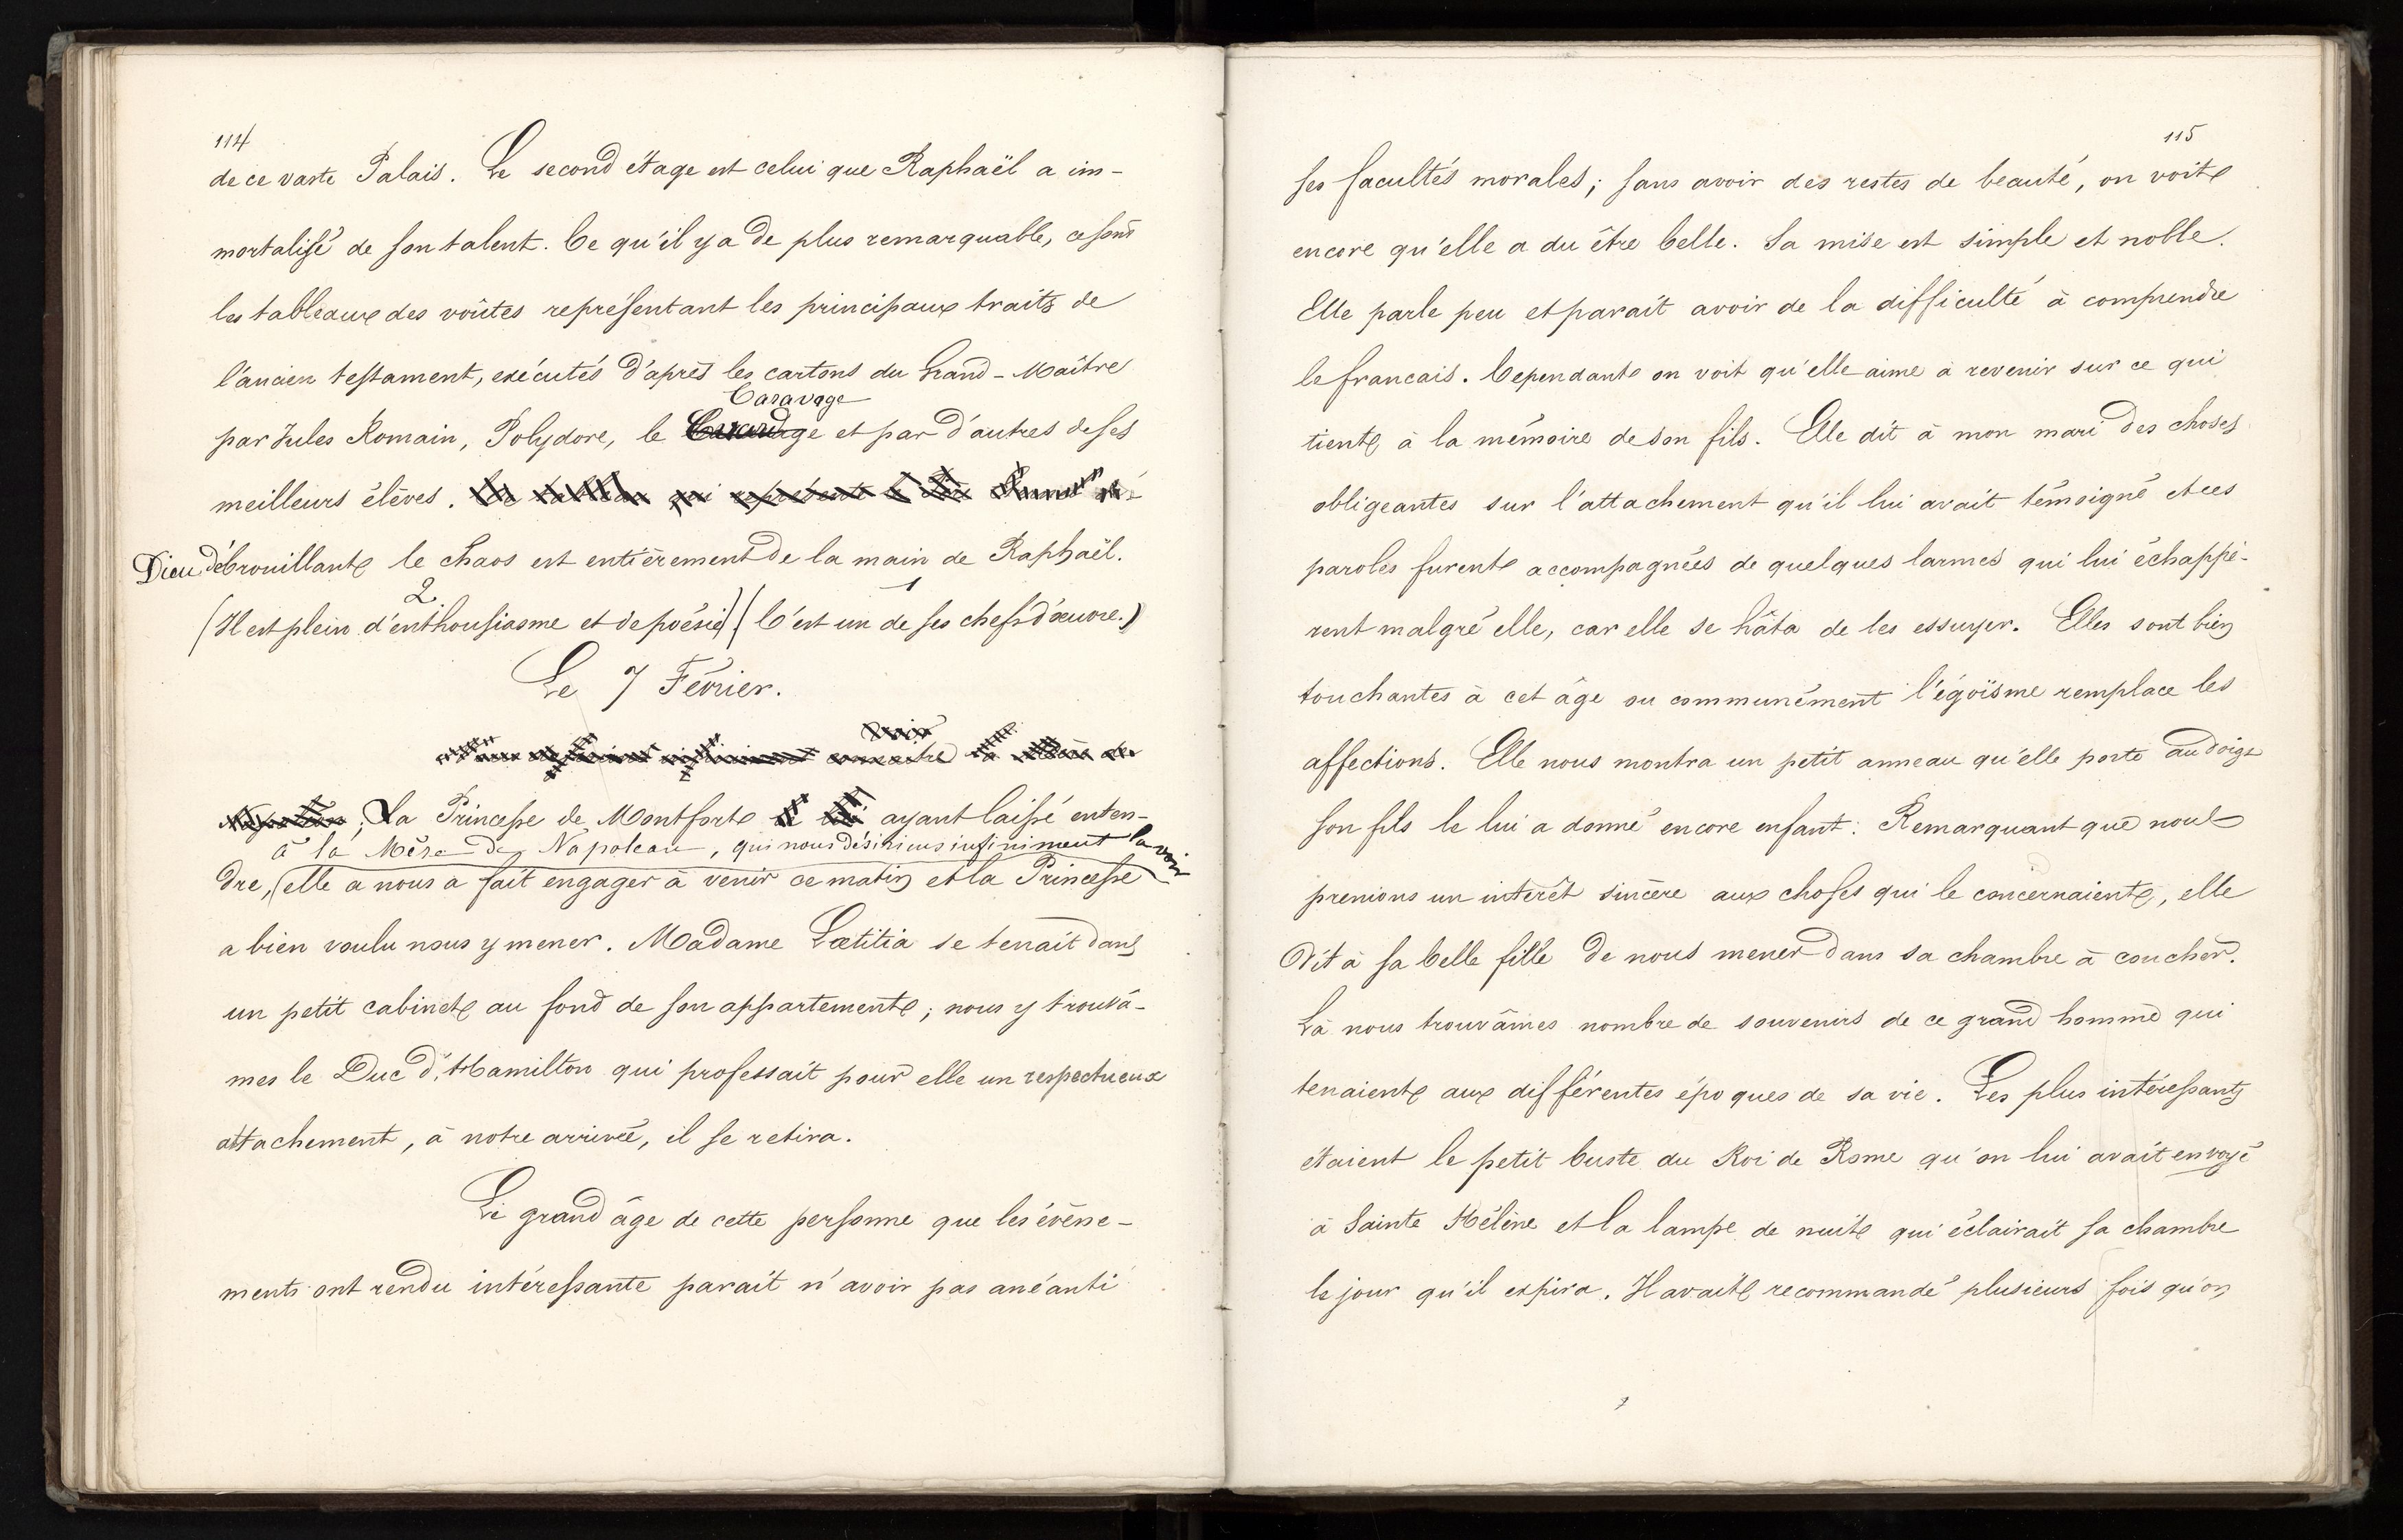 114
de ce vaste Palais. Le second étage est celui que Raphaël a im-
mortalisé de son talent. Ce qu'il y a de plus remarquable, ce sont
les tableaux des voûtes représentant les principaux traits de
l'ancien testament, exécutés d'après les cartons du Grand-Maître
Caravage
par Jules Romain, Polydore, le et par d'autres de ses
meilleurs élèves.
Dieu débrouillant le chaos est entièrement de la main de Raphaël.
2 1
(Il est plein d'enthousiasme et de poésie) (C'est un de ses chefs d'œuvre.)
Le 7 Février.
connaître
; La Princesse de Montfort ayant laissé enten-
à la Mère de Napoléon, qui nous désirions infiniment la voir
dre, elle a nous a fait engager à venir ce matin et la Princesse
a bien voulu nous y mener. Madame Lœtitia se tenait dans
un petit cabinet au fond de son appartement; nous y trouvâ-
mes le Duc d'Hamilton qui professait pour elle un respectueux
attachement, à notre arrivée, il se retira.
Le grand âge de cette personne que les évène-
ments ont rendu intéressante parait n'avoir pas anéanti
115
ses facultés morales; sans avoir des restes de beauté, on voit
encore qu'elle a du être belle. Sa mise est simple et noble.
Elle parle peu et parait avoir de la difficulté à comprendre
le francais. Cependant on voit qu'elle aime à revenir sur ce qui
tient à la mémoire de son fils. Elle dit à mon mari des choses
obligeantes sur l'attachement qu'il lui avait témoigné et ces
paroles furent accompagnées de quelques larmes qui lui échappè-
rent malgré elle, car elle se hâta de les essuyer. Elles sont bien
touchantes à cet âge ou communément l'égoïsme remplace les
affections. Elle nous montra un petit anneau qu'elle porte au doigt
son fils le lui a donné encore enfant: Remarquant que nous
prenions un intérêt sincère aux choses qui le concernaient, elle
dit à sa belle fille de nous mener dans sa chambre à coucher.
Là nous trouvâmes nombre de souvenirs de ce grand homme qui
tenaient aux différentes époques de sa vie. Les plus intéressants
étaient le petit buste du Roi de Rome qu'on lui avait envoyé
à Sainte Hélène et la lampe de nuit qui éclairait sa chambre
le jour qu'il expira. Il avait recommandé plusieurs fois qu'on